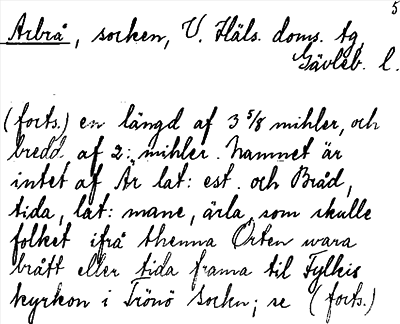 5
Arbrå, socken, V. Häls. doms. tg,
Gävleb. l.
(forts.) en längd af 3 5/8 mihler, och
bredd af 2: mihler. Namnet är
intet af Är lat: est. och Bråd,
tida, lat: mane, ärla, som skulle
folket ifrå thenna Orten wara
brått eller tida frama til Fylkis
kyrkon i Trönö Sockn; se (forts.)